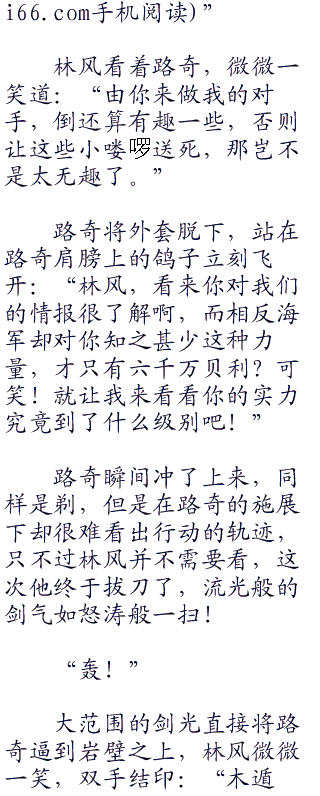 i66.com手机阅读)”
林风看着路奇，微微一
笑道：“由你来做我的对
手，倒还算有趣一些，否则
让这些小喽啰送死，那岂不
是太无趣了。”
路奇将外套脱下，站在
路奇肩膀上的鸽子立刻飞
开：“林风，看来你对我们
的情报很了解啊，而相反海
军却对你知之甚少这种力
量，才只有六千万贝利？可
笑！就让我来看看你的实力
究竟到了什么级别吧！”
路奇瞬间冲了上来，同
样是剃，但是在路奇的施展
下却很难看出行动的轨迹，
只不过林风并不需要看，这
次他终于拔刀了，流光般的
剑气如怒涛般一扫！
“轰！”
大范围的剑光直接将路
奇逼到岩壁之上，林风微微
一笑，双手结印：“木遁